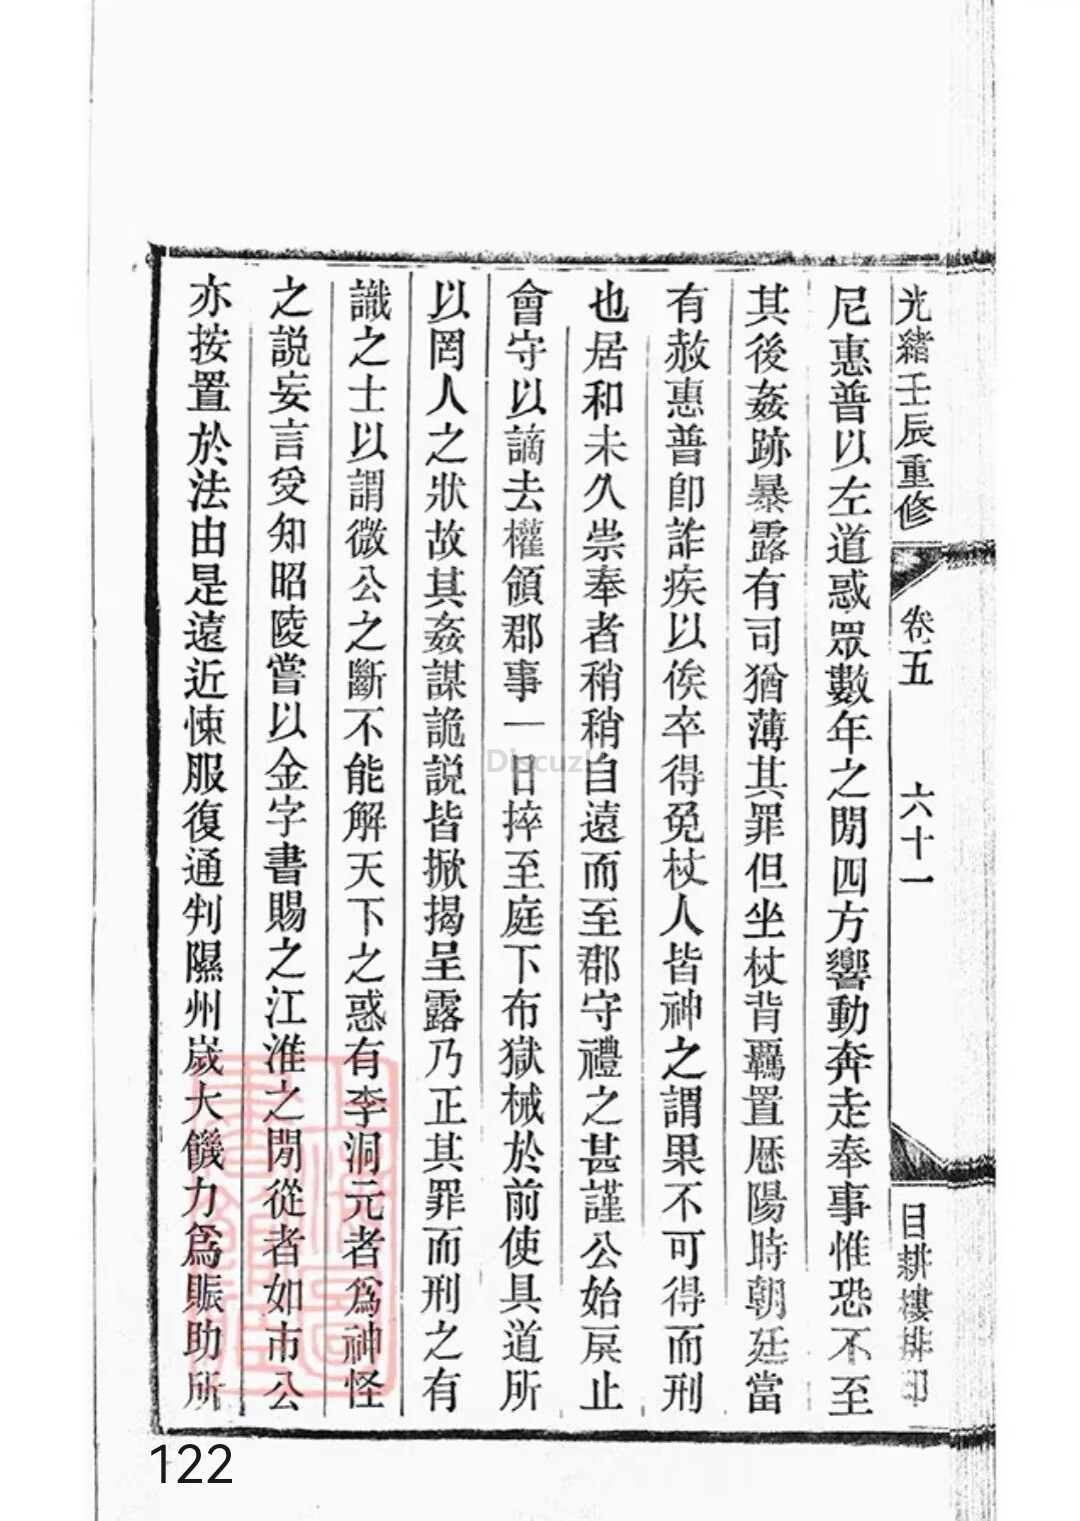 光緒壬辰重修
卷五
六十一
目耕樓排印
尼惠普以左道惑眾數年之閒四方響動奔走奉事惟恐不至
其後姦跡暴露有司猶薄其罪但坐杖背羈置厯陽時朝廷當
有赦惠普卽詐疾以俟卒得免杖人皆神之謂果不可得而刑
也居和未久崇奉者稍稍自遠而至郡守禮之甚謹公始戾止
會守以謫去權領郡事一日捽至庭下布獄械於前使具道所
以罔人之狀故其姦謀詭說皆掀揭呈露乃正其罪而刑之有
識之士以謂微公之斷不能解天下之惑有李洞元者爲神怪
之說妄言受知昭陵嘗以金字書賜之江淮之閒從者如市公
亦按置於法由是遠近悚服復通判隰州歲大饑力爲賑助所
Discuz!
122